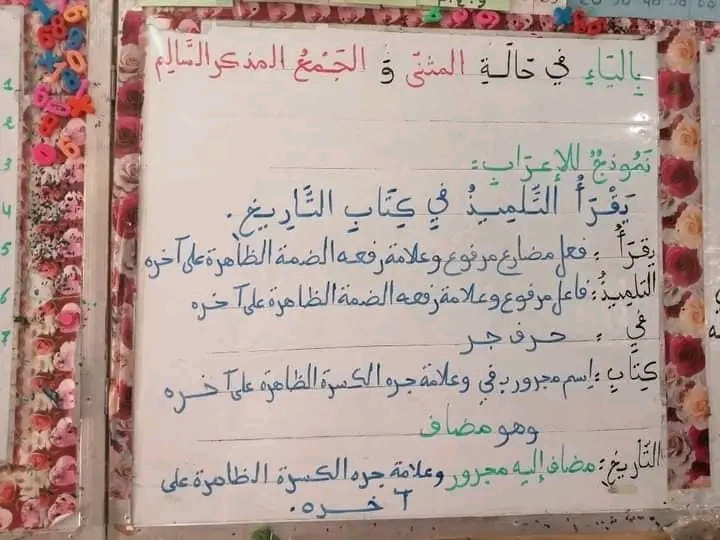 بِاليَاءِ في حَالَةِ المثنّى وَ الجَمْعُ المذكر السَّالِم
نَمُوذجٌ للإِعرَابِ:
يَقْرَأُ التَّلمِيذُ في كِتَابِ التَّارِيخِ.
يقرَأُ: فعل مضارع مرفوع وعلامة رفعه الضمة الظاهرة على آخره
التلميذُ: فاعل مرفوع وعلامة رفعه الضمة الظاهرة على آخره
في: حرف جر
كِتَابِ: إسم مجرور بـ في وعلامة جره الكسرة الظاهرة على آخره
وهو مضاف
التَّاريخِ: مضاف إليه مجرور وعلامة جره الكسرة الظاهرة على
آخره.
1
2
3
4
5
6
7